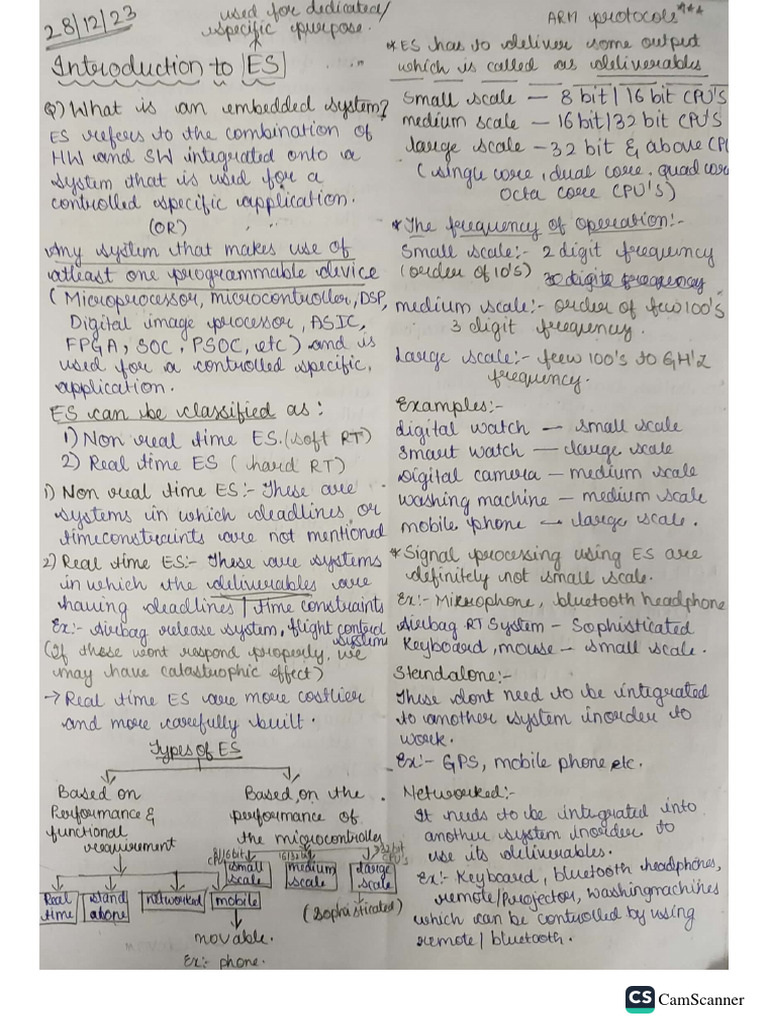 28/12/23
used for dedicated/
specific purpose.
Introduction to ES
Q) What is an embedded system?
ES refers to the combination of
HW and SW integrated onto a
system that is used for a
controlled specific application.
(OR)
Any system that makes use of
atleast one programmable device
(Microprocessor, microcontroller, DSP,
Digital image processor, ASIC,
FPGA, SOC, PSOC, etc) and is
used for a controlled specific,
application.
ES can be classified as:
1) Non real time ES. (soft RT)
2) Real time ES (hard RT)
1) Non real time ES:- These are
systems in which deadlines or
timeconstraints are not mentioned
2) Real time ES:- These are systems
in which the deliverables are
having deadlines | time constraints
Ex:- Airbag release system, flight control
system
(If these wont respond properly, we
may have catastrophic effect)
→ Real time ES are more costlier
and more carefully built.
Types of ES
Based on
Performance &
functional
requirement
Real
time
stand
alone
networked
mobile
movable.
Ex:- phone.
Based on the
performance of
the microcontroller
8/16 bit
CPU's
small
scale
16/32 bit
medium
scale
>32 bit
CPU's
large
scale
(sophisticated)
ARM protocols***
* ES has to deliver some output
which is called as deliverables
Small scale — 8 bit | 16 bit CPU'S
medium scale — 16 bit | 32 bit CPU'S
large scale — 32 bit & above CPU
(single core, dual core, quad core
Octa core CPU'S)
* The frequency of Operation:-
Small scale:- 2 digit frequency
(order of 10's) 30 digits frequency
medium scale:- order of few 100's
3 digit frequency.
Large scale:- feew 100's to GH'z
frequency.
Examples:-
digital watch — small scale
smart watch — large scale
Digital camera — medium scale
washing machine — medium scale
mobile phone → large scale.
* Signal processing using ES are
definitely not small scale.
Ex:- Microphone, bluetooth headphone
Airbag RT System - Sophisticated
Keyboard, mouse - small scale.
Standalone:-
These dont need to be integrated
to another system inorder to
work.
Ex:- GPS, mobile phone etc.
Networked:-
It needs to be integrated into
another system inorder to
use its deliverables.
Ex:- Keyboard, bluetooth headphones,
remote/Projector, washingmachines
which can be controlled by using
remote | bluetooth.
CS CamScanner